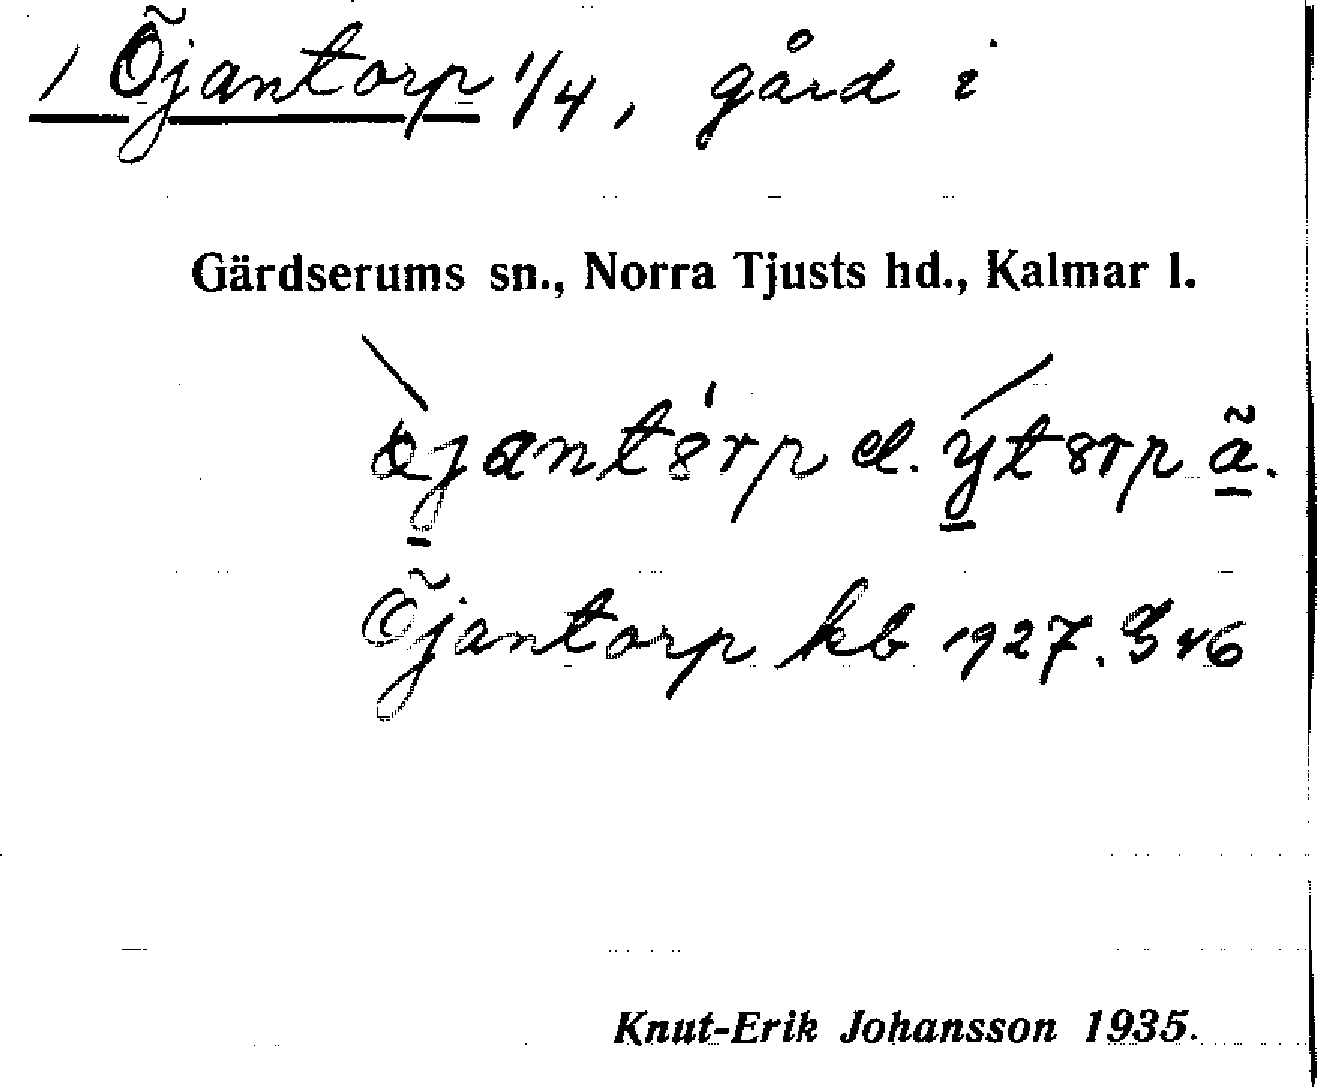 1 Öjantorp 1/4, gård i
Gärdserums sn., Norra Tjusts hd., Kalmar l.
öjantörp el. ýtörp ã.
Öjantorp kb 1927. S 46
Knut-Erik Johansson 1935.